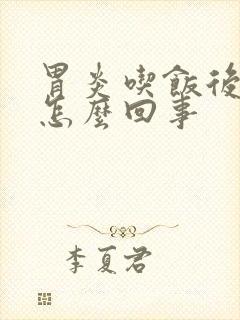 胃炎喫飯後
怎麼回事
李夏君